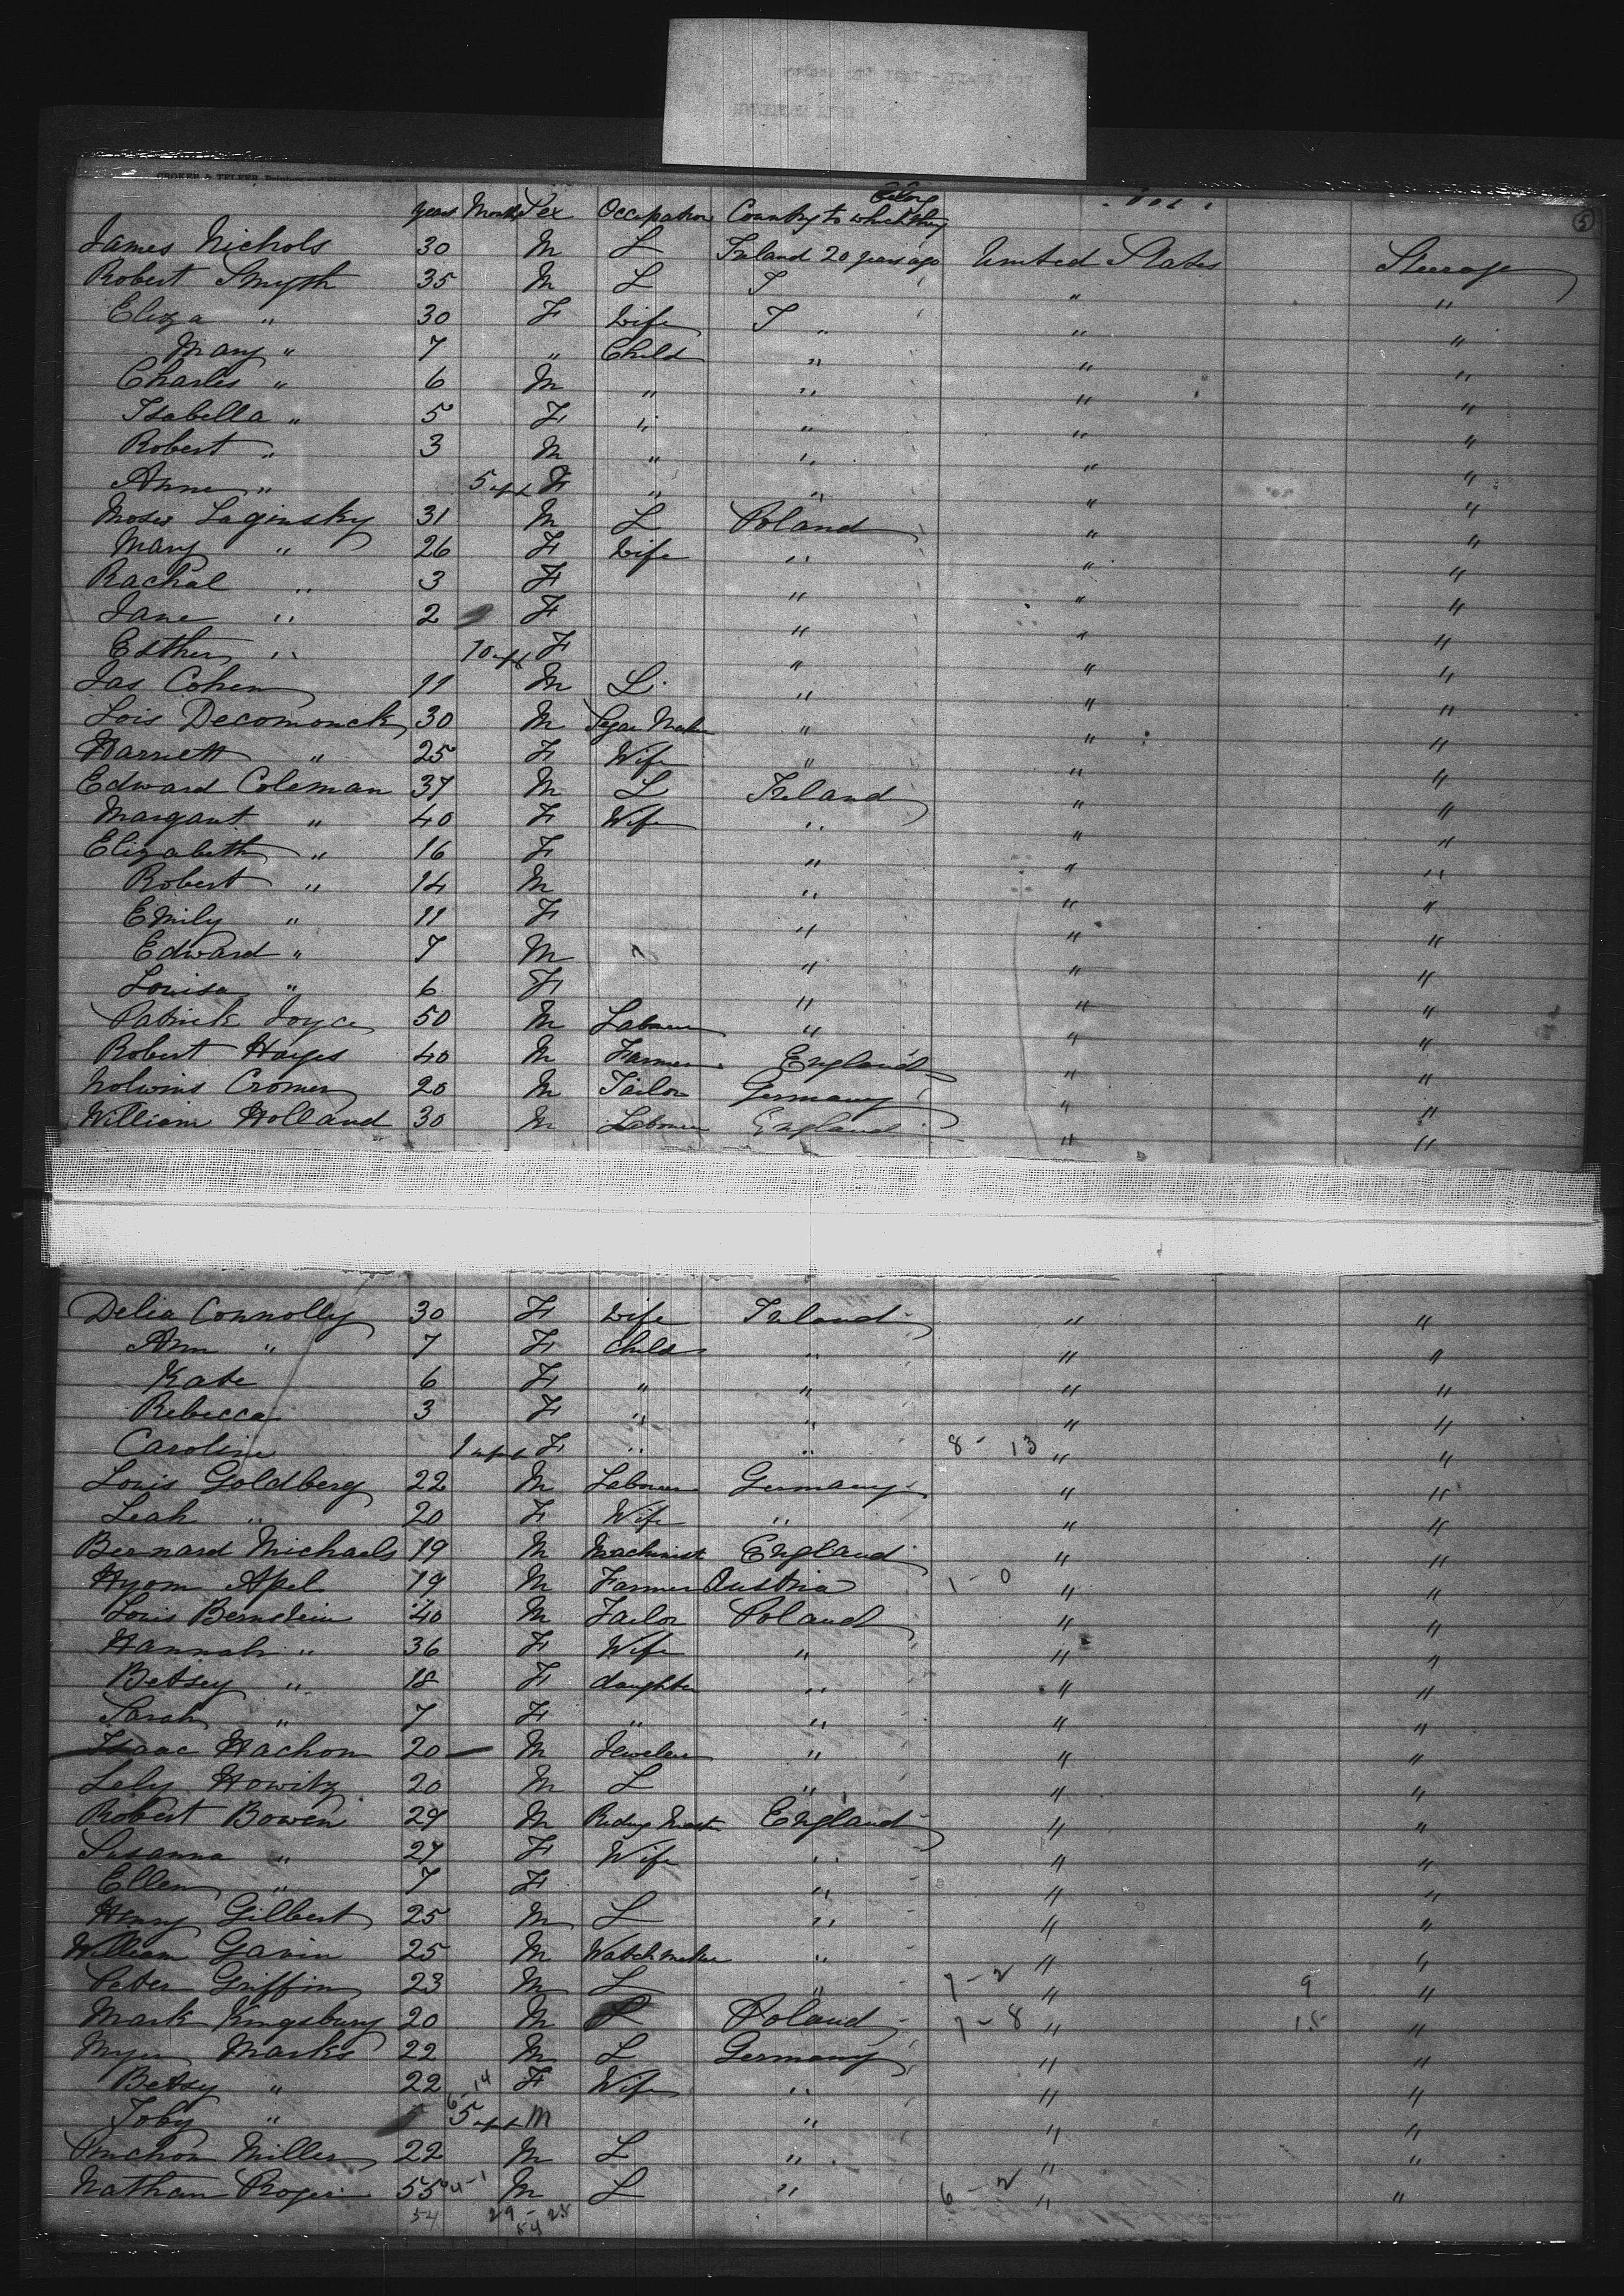 years Months Sex Occupation Country to which they belong
5
James Nichols 30 M L Ireland 20 years ago United States Steerage
Robert Smyth 35 M L I " "
Eliza " 30 F Wife I " " "
Mary " 7 " Child " " "
Charles " 6 M " " " "
Isabella " 5 F " " " "
Robert " 3 M " " " "
Anne " 5 inft F " " " "
Moses Laginsky 31 M L Poland " "
Mary " 26 F Wife " " "
Rachal " 3 F " " "
Jane " 2 F " " "
Esther " 10 inft F " " "
Jas Cohen 11 M L " " "
Lois Decomonck 30 M Segar Maker " " "
Harriett " 25 F Wife " " "
Edward Coleman 37 M L Ireland " "
Margaret " 40 F Wife " " "
Elizabeth " 16 F " " "
Robert " 14 M " " "
Emily " 11 F " " "
Edward " 7 M " " "
Louisa " 6 F " " "
Patrick Joyce 50 M Labourer " " "
Robert Hayes 40 M Farmer England " "
Cromer 20 M Tailor Germany " "
William Holland 30 M Labourer England " "
Delia Connolly 30 F Wife Ireland " "
Ann " 7 F Child " " "
Kate 6 F " " " "
Rebecca 3 F " " " "
Caroline 1 inft F " " 8 - 13 " "
Louis Goldberg 22 M Labourer Germany " "
Leah " 20 F Wife " " "
Bernard Michaels 19 M Machinist England " "
Hyom Apel 19 M Farmer Austria 1 - 0 " "
Louis Bernstein 40 M Tailor Poland " "
Hannah " 36 F Wife " " "
Betsey " 18 F daughter " " "
Sarah " 7 F " " " "
Isaac Hachon 20 M Jeweler " " "
Lely Howitz 20 M L " " "
Robert Bowen 29 M Riding Master England " "
Susanna " 27 F Wife " " "
Ellen " 7 F " " "
Henry Gilbert 25 M L " " "
William Gavin 25 M Watchmaker " " "
Peter Griffin 23 M L " 7 - 2 " 9 "
Mark Kingsbury 20 M L Poland 7 - 8 " 15 "
Myer Marks 22 M L Germany " "
Betsy " 22 F Wife " " "
6-14
Toby " 5 inft M " " "
Miller 22 M L " " "
Nathan Roger 55 4-1 M L " 6 - 2 " "
54 29 - 25
54